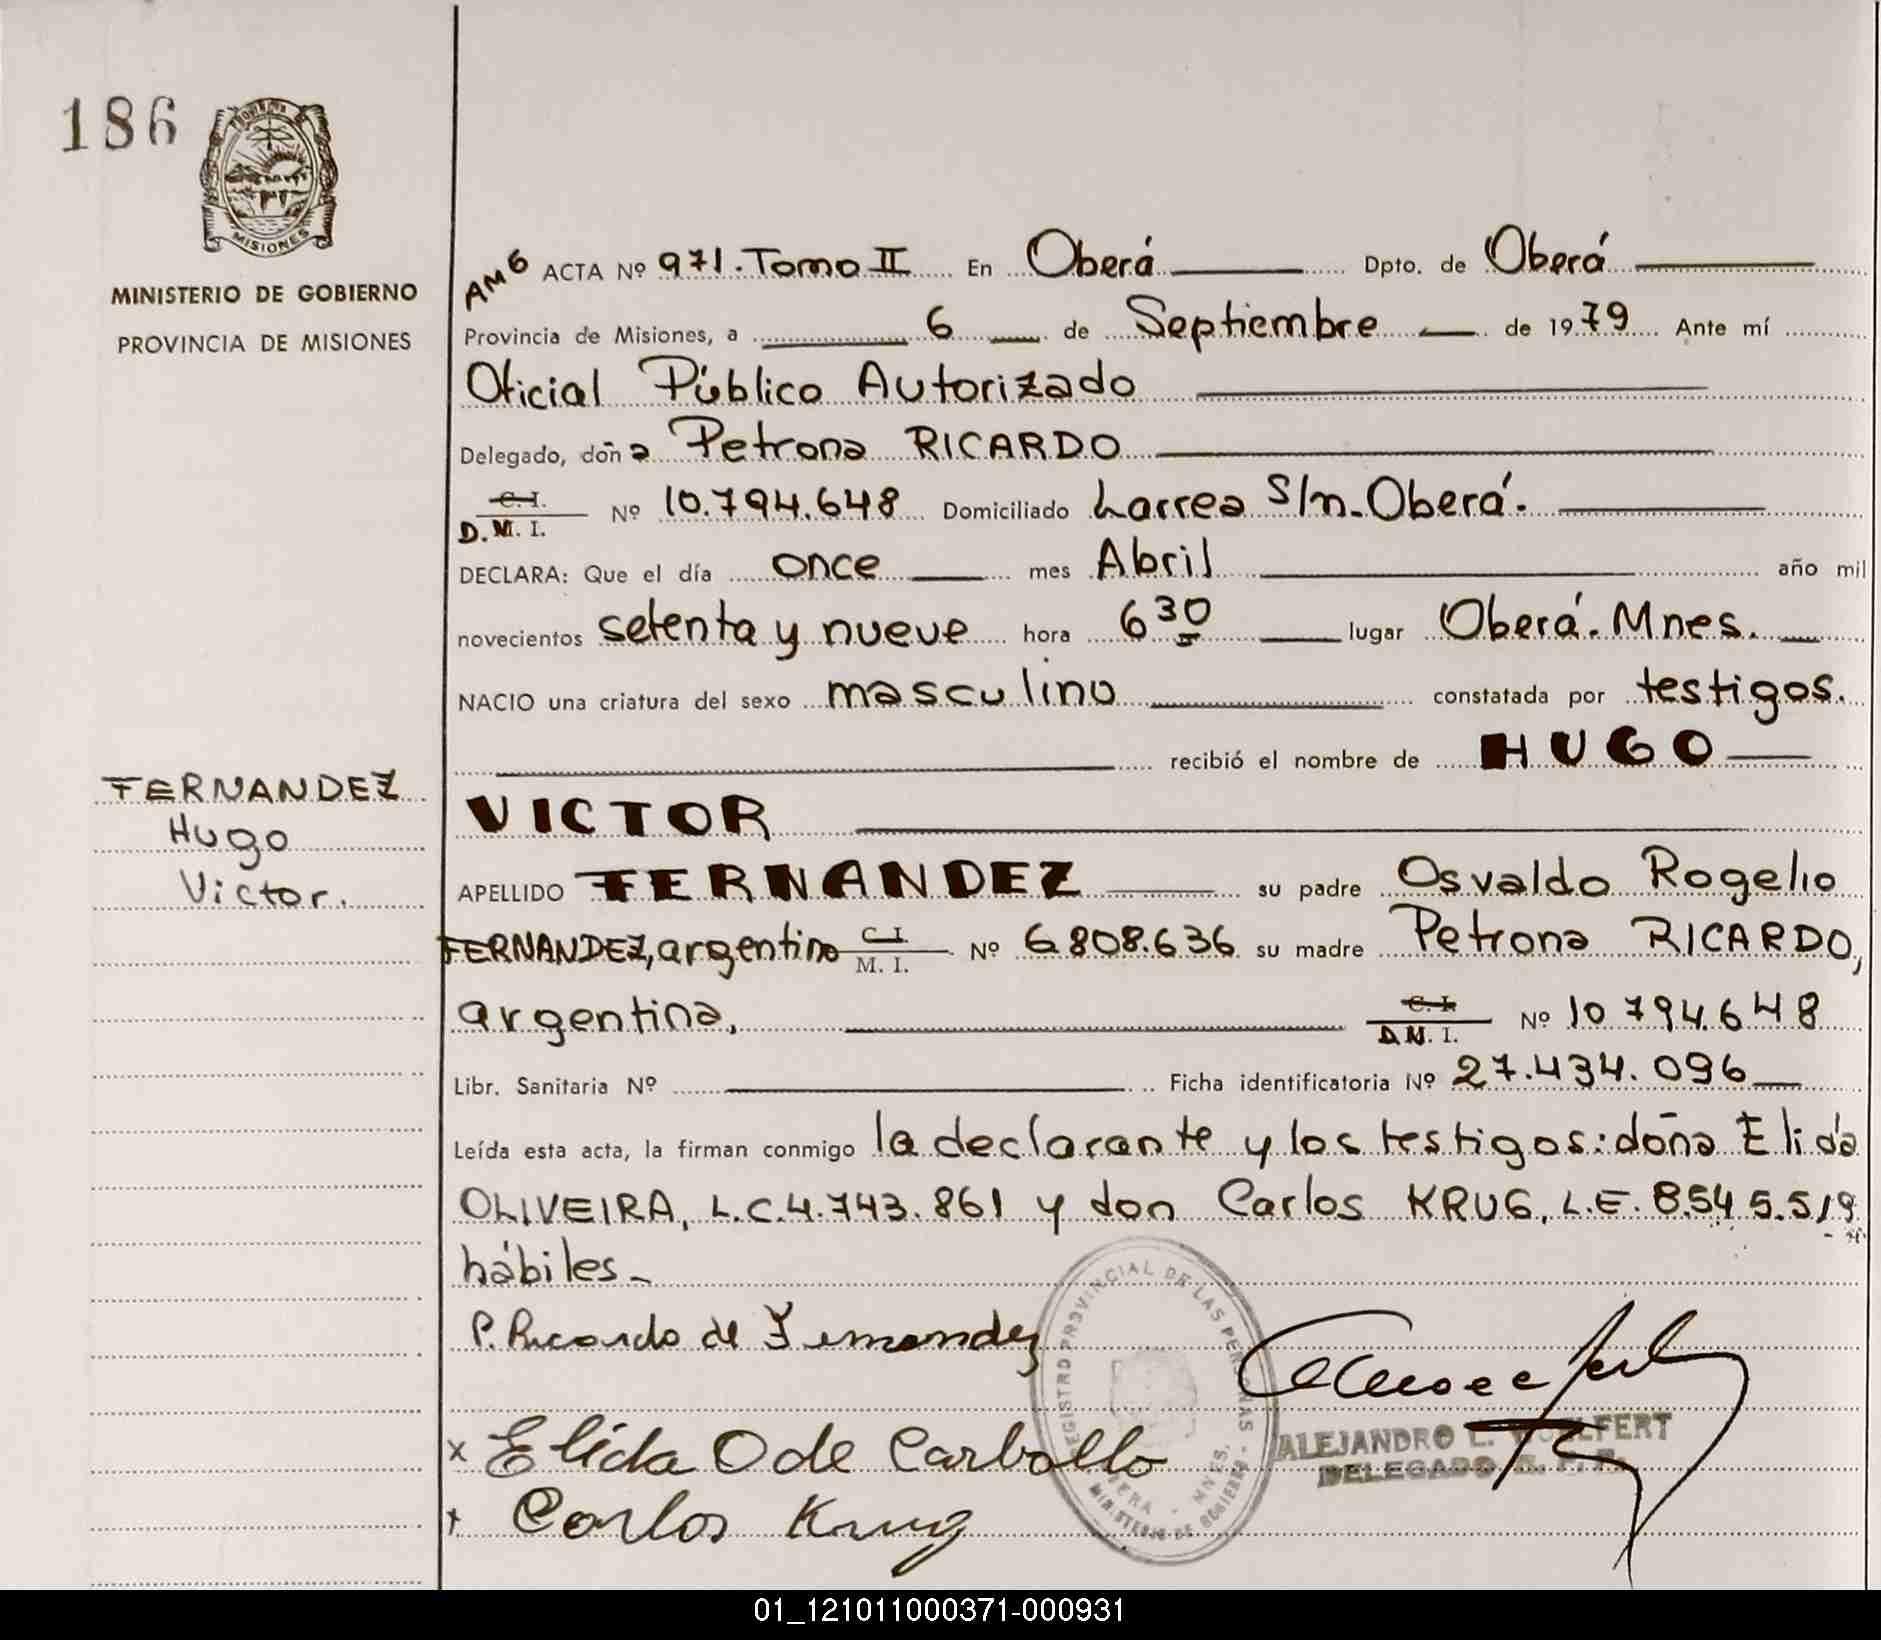 186
MISIONES
MINISTERIO DE GOBIERNO
PROVINCIA DE MISIONES
AM6 ACTA Nº 971. Tomo II En Oberá Dpto. de Oberá
Provincia de Misiones, a 6 de Septiembre de 1979 Ante mí
Oficial Público Autorizado
Delegado, doña Petrona RICARDO
C. I.
D. M. I. Nº 10.794.648 Domiciliado Larrea S/n. Oberá.
DECLARA: Que el día once mes Abril año mil
novecientos setenta y nueve hora 6 30 lugar Oberá. Mnes.
NACIO una criatura del sexo masculino constatada por testigos.
recibió el nombre de HUGO
VICTOR
APELLIDO FERNANDEZ su padre Osvaldo Rogelio
FERNANDEZ, argentino C. I. M. I. Nº 6.808.636 su madre Petrona RICARDO,
argentina, C. I. D. M. I. Nº 10.794.648
Libr. Sanitaria Nº Ficha identificatoria Nº 27.434.096
Leída esta acta, la firman conmigo la declarante y los testigos: doña Elida
OLIVEIRA, L.C. 4.743.861 y don Carlos KRUG, L.E. 8.545.519
hábiles_
P. Ricardo de Fernandez
x Elida O de Carballo
Carlos Krug
FERNANDEZ
Hugo
Victor.
REGISTRO PROVINCIAL DE LAS PERSONAS - MINISTERIO DE GOBIERNO
OBERA - MNES.
ALEJANDRO L. WOELFERT
DELEGADO
01_121011000371-000931